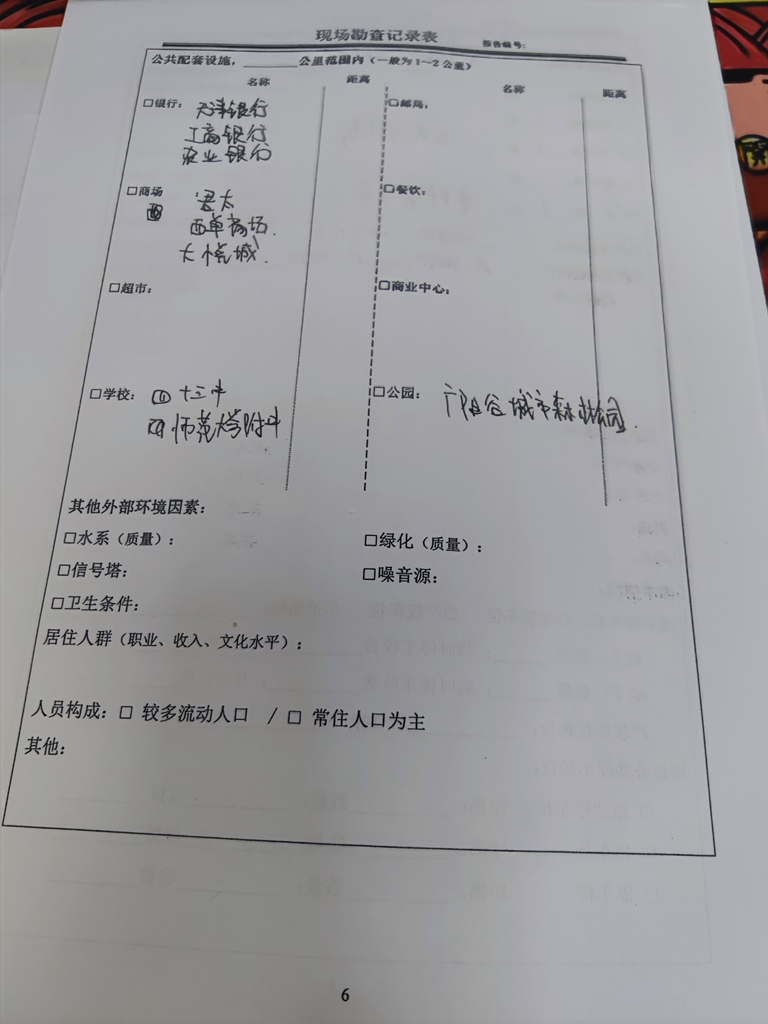 现场勘查记录表
报告编号：
公共配套设施，______公里范围内（一般为1～2公里）
名称 距离 名称 距离
□银行： 天津银行
工商银行
农业银行
□邮局：
□商场： 君太
西单商场.
大悦城.
□餐饮：
□超市：
□商业中心：
□学校： 十三中
师范大学附中
□公园： 广阳谷城市森林公园.
其他外部环境因素：
□水系（质量）： □绿化（质量）：
□信号塔： □噪音源：
□卫生条件：
居住人群（职业、收入、文化水平）：
人员构成：□ 较多流动人口 / □ 常住人口为主
其他：
6